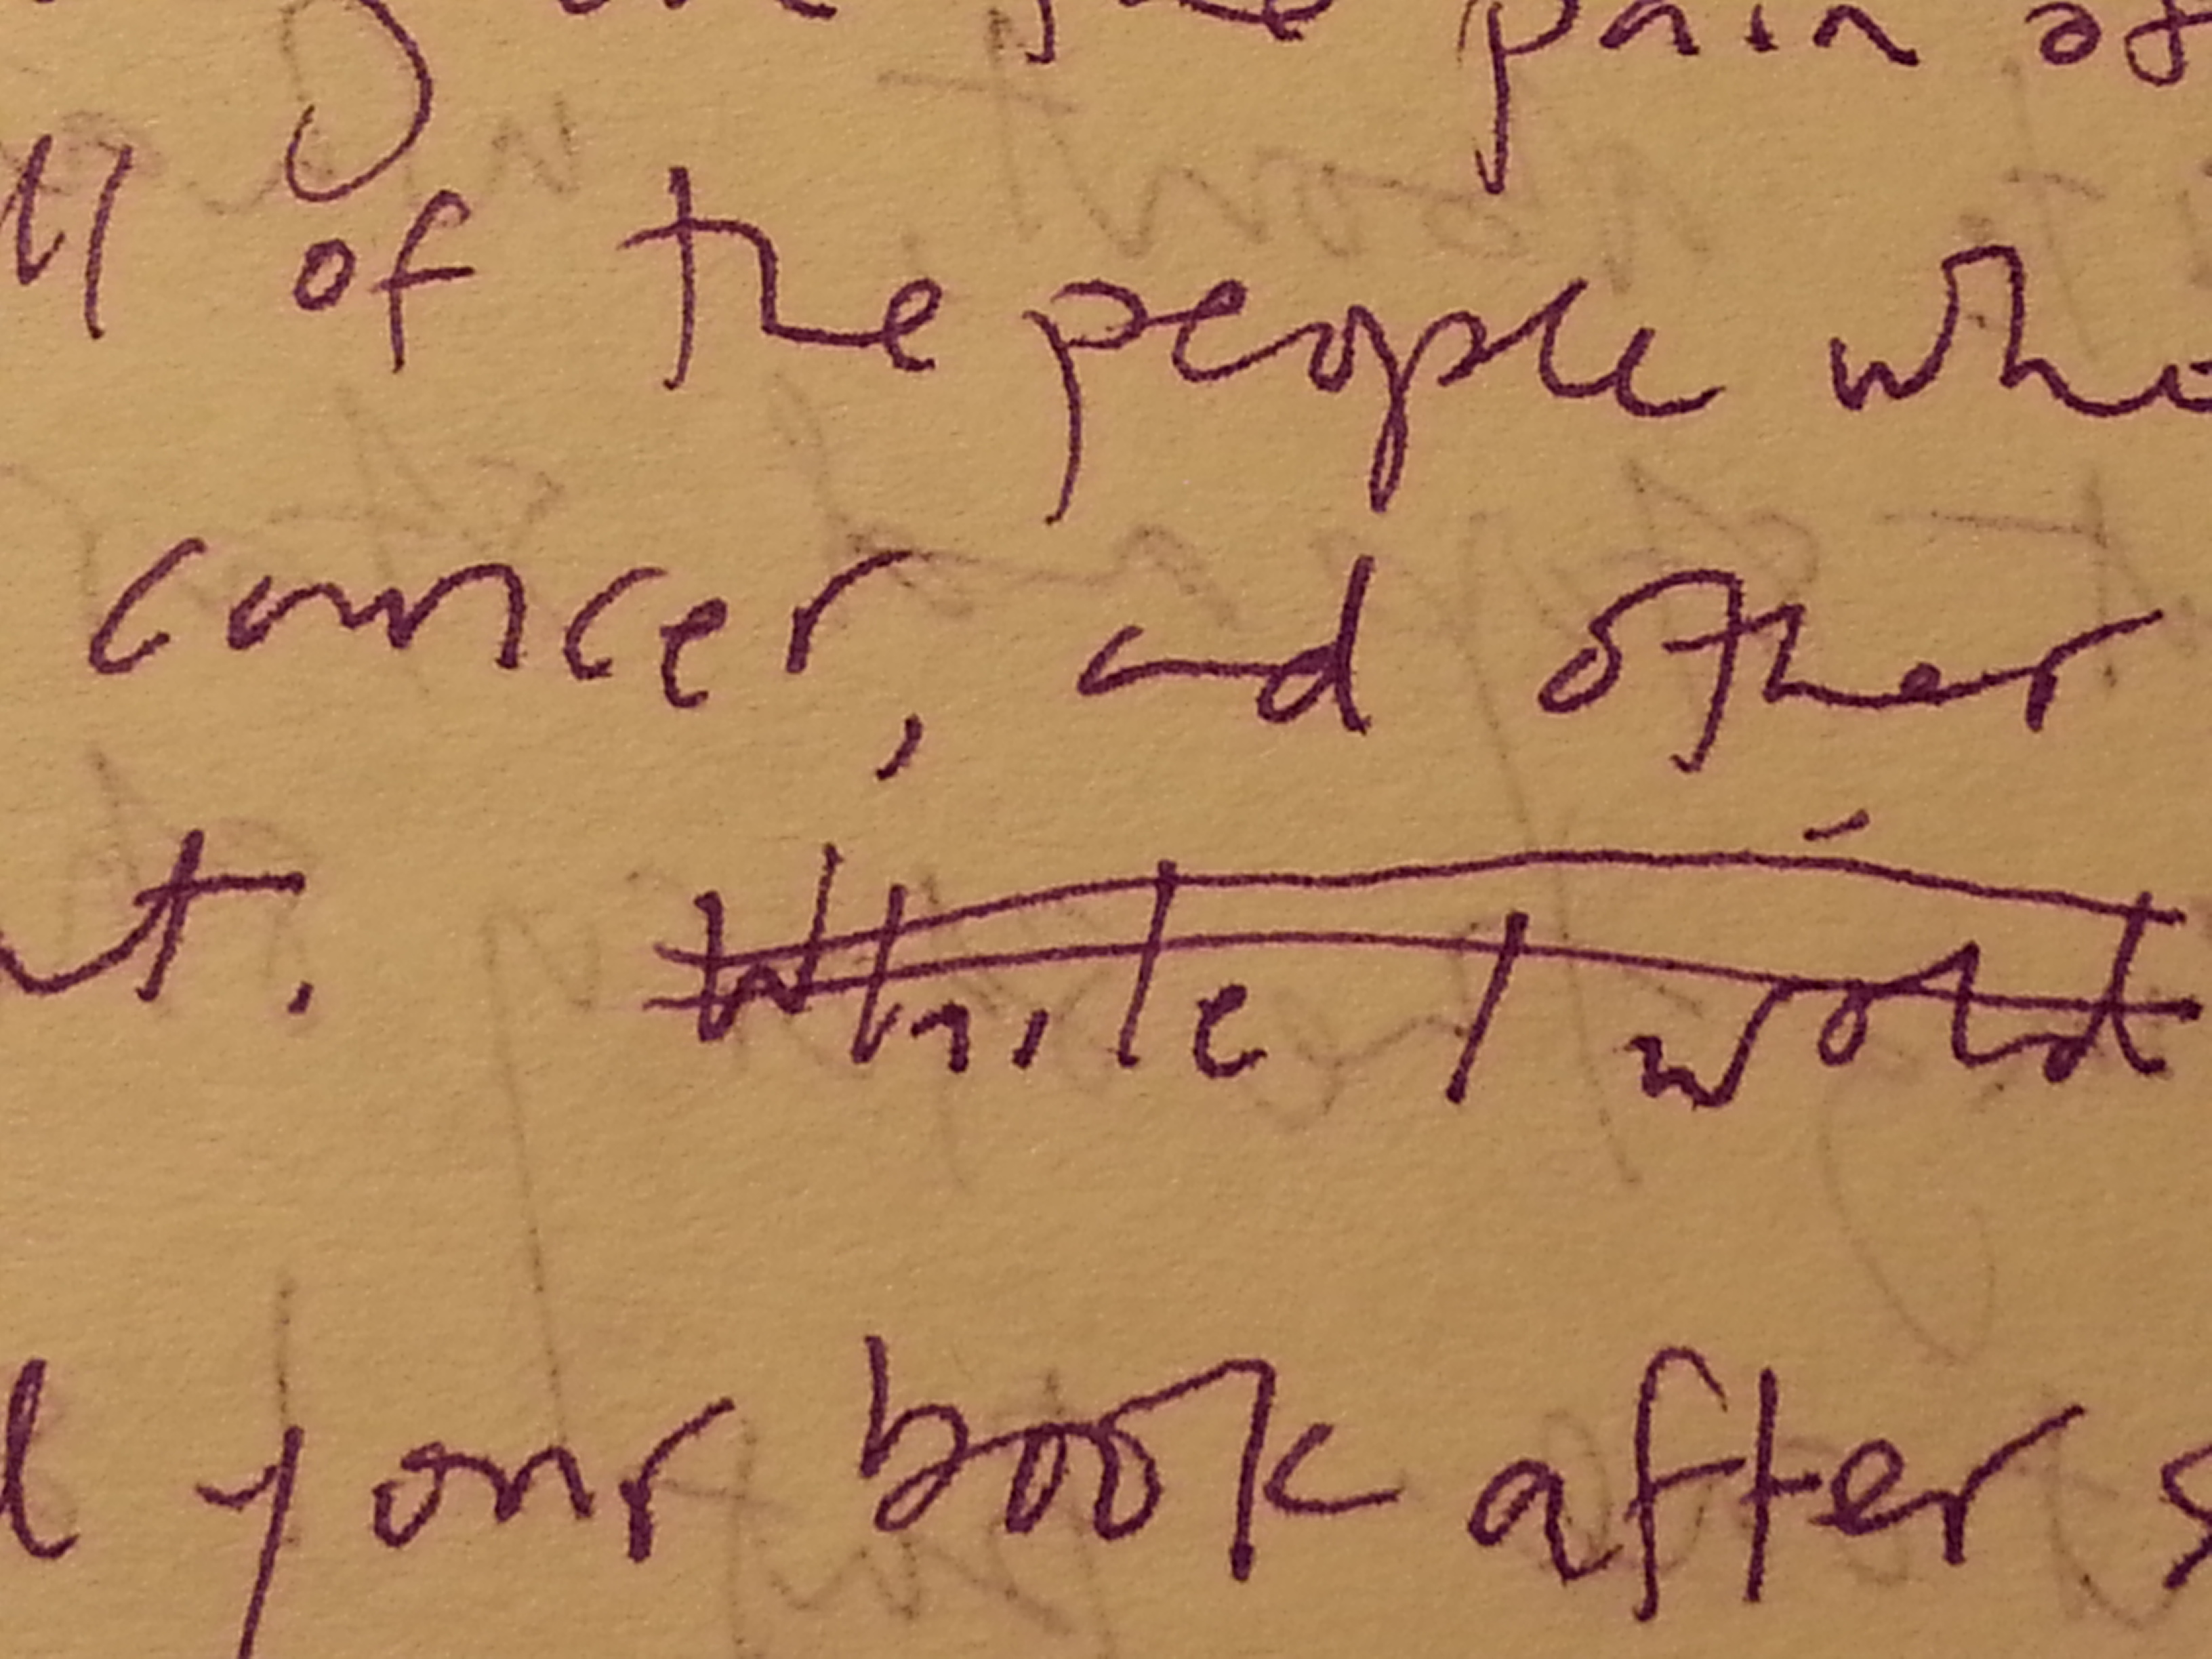 the pain of
of the people who
cancer, ad other
While I wold
your book after